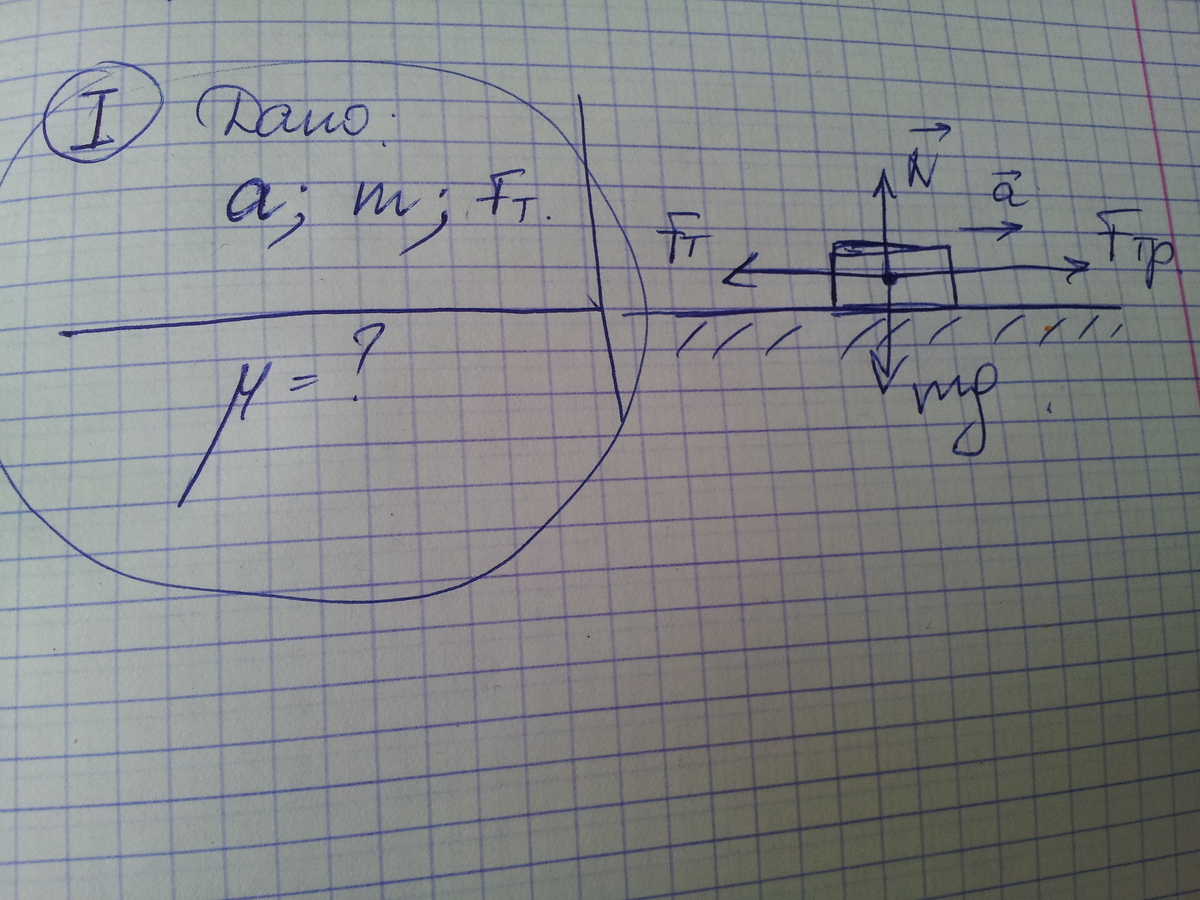 I Дано:
a; m; Fт.
μ = ?
N
a
Fт
Fтр
mg